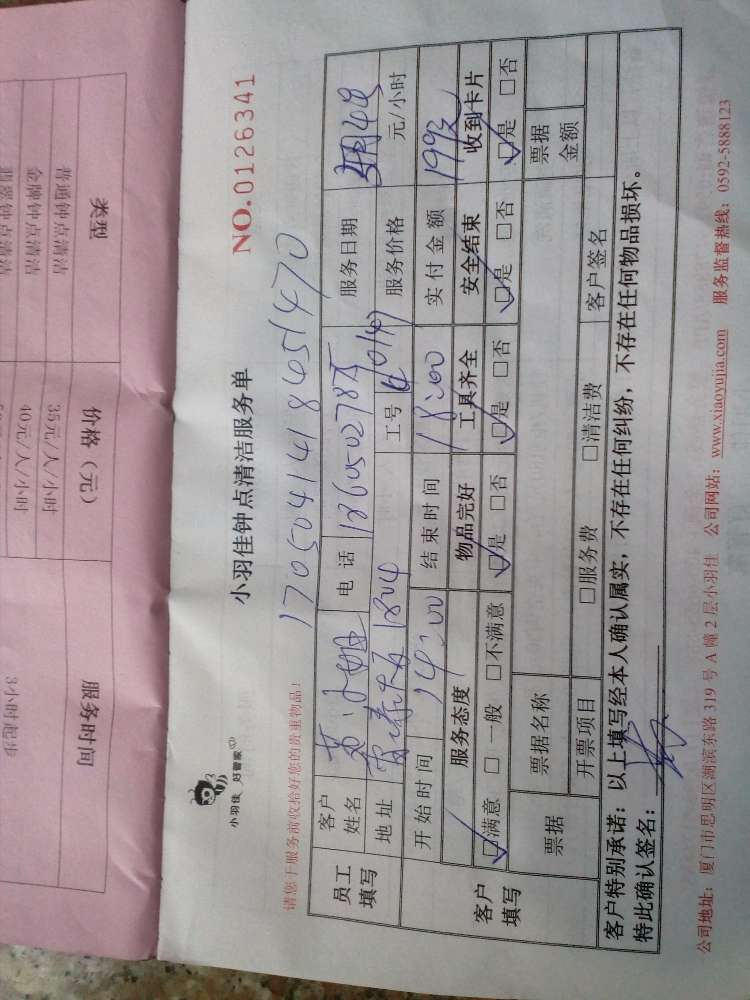 小羽佳钟点清洁服务单
小羽佳 好管家
NO.0126341
请您于服务前收拾好您的贵重物品!
17050414186051470
员工填写
客户姓名 小姐 电话 服务日期
地址 1804 工号 服务价格 元/小时
客户填写
开始时间 14:00 结束时间 18:00 实付金额 199元
服务态度 物品完好 工具齐全 安全结束 收到卡片
□满意 □一般 □不满意 □是 □否 □是 □否 □是 □否 □是 □否
票据 票据名称 票据金额
开票项目 □服务费 □清洁费 客户签名
客户特别承诺:以上填写经本人确认属实,不存在任何纠纷,不存在任何物品损坏。
特此确认签名:
公司地址:厦门市思明区湖滨东路 319 号 A 幢 2 层小羽佳 公司网站:www.xiaoyujia.com 服务监督热线:0592-5888123
服务时间 价格(元) 类型
3小时起步 35元/人/小时 普通钟点清洁
40元/人/小时 金牌钟点清洁